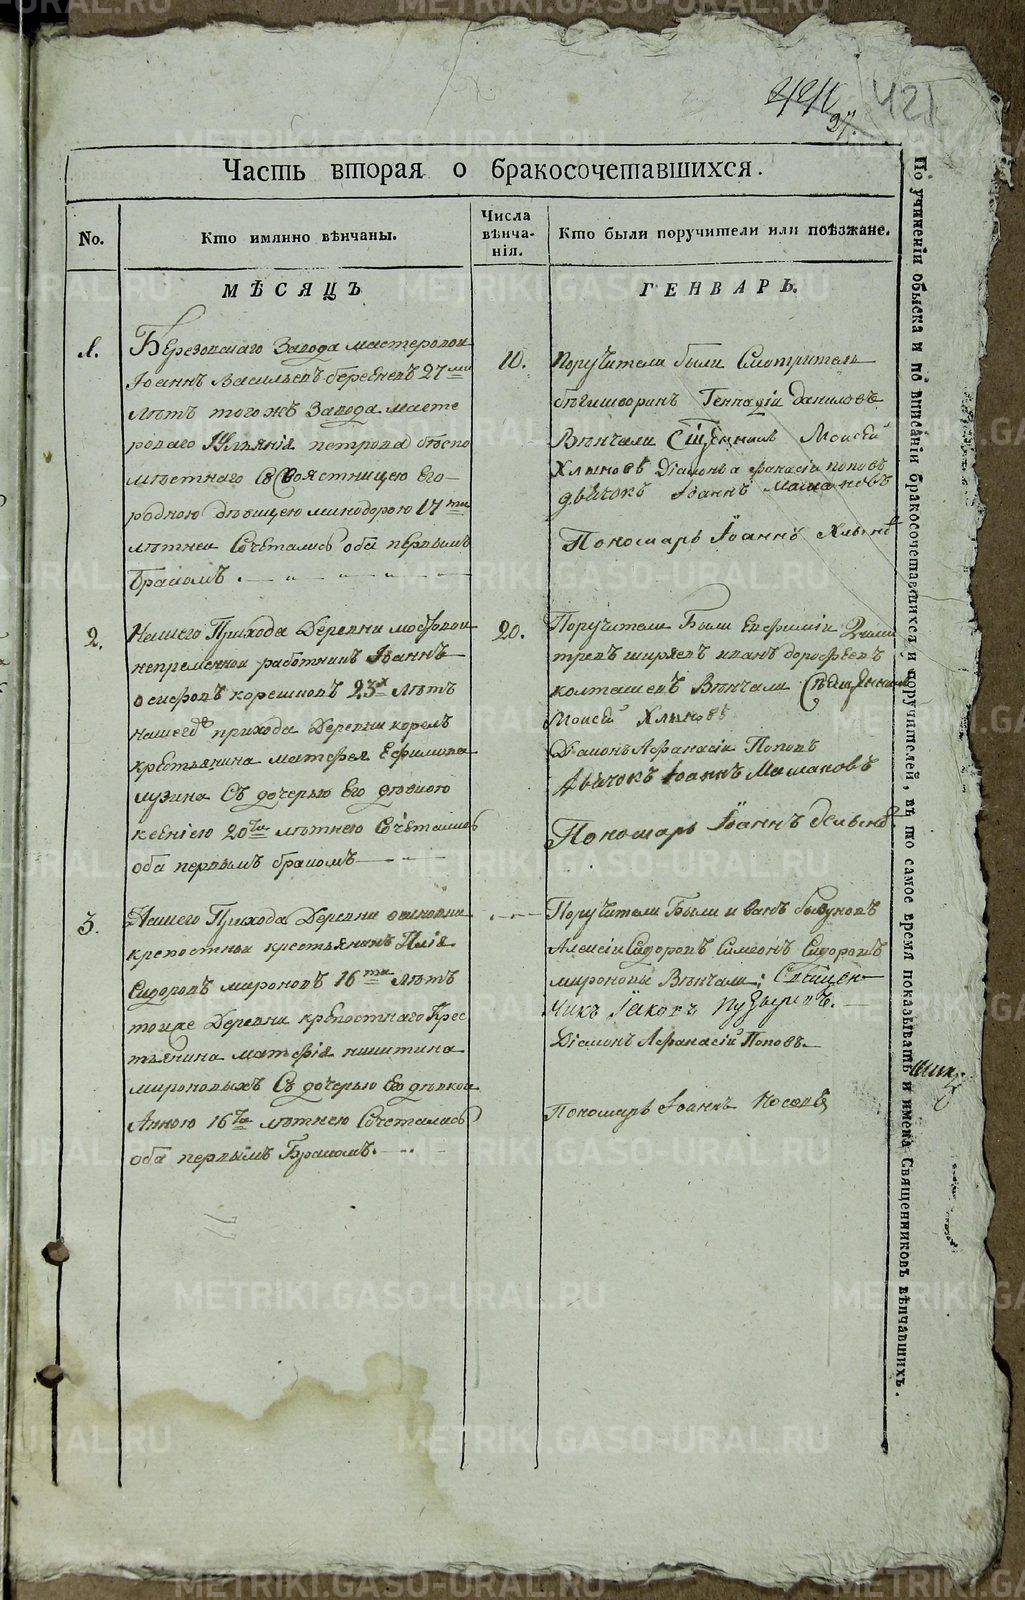 421
27.
Часть вторая о бракосочетавшихся.
No.
Кто имянно вѣнчаны.
Числа
вѣнча-
нія.
Кто были поручители или поѣзжане.
МѢСЯЦЪ
ГЕНВАРЬ.
1.
Березовскаго Завода мастеровои
Іоаннъ Васильевъ 27ми
лѣтъ тогожъ Завода масте
роваго петрова
Его
родною 17ти
лѣтнеи Сочетались оба первымъ
бракомъ
10.
Поручители были Смотритель
Геннадіи Даниловъ
Вѣнчали Сщенникъ Моисеи
Хлыновъ Діаконъ Афанасіи поповъ
дьячокъ Іоаннъ
Пономарь Іоаннъ
2.
Нашего Прихода Деревни
непременнои работникъ Іоаннъ
осиповъ 23х лѣтъ
нашегожъ прихода Деревни
крестьянина матфея Ефимова
лузина Съ дочерью Его дѣвкою
20ти лѣтнею Сочетались
оба первымъ бракомъ
20.
Поручители Были Евфиміи
ширяевъ иванъ дорофеевъ
колташевъ Вѣнчали Священникъ
Моисеи Хлыновъ
Діаконъ Афанасіи Поповъ
Дьячокъ Іоаннъ
Пономарь Іоаннъ
3.
Нашего Прихода Деревни
крепостнои крестьянинъ Илія
Сидоровъ мироновъ 16ти лѣтъ
тоижъ Деревни крѣпостнаго Крес
тьянина матфія никитина
мироновыхъ Съ дочерью Его дѣвкои
Анною 16ти лѣтнею Сочетались
оба первымъ Бракомъ.
Поручители Были иванъ
Алексіи Сидоровъ Симеонъ Сидоровъ
мироновы Вѣнчали: Священ-
никъ Іаковъ Пузыревъ.
Діаконъ Афанасіи Поповъ
Пономарь Іоаннъ Носовъ
По учиненіи обыска и по вписаніи бракосочетавшихся и поручителей, въ то самое время показывать и имена Священниковъ вѣнчавшихъ.
METRIKI.GASO-URAL.RU